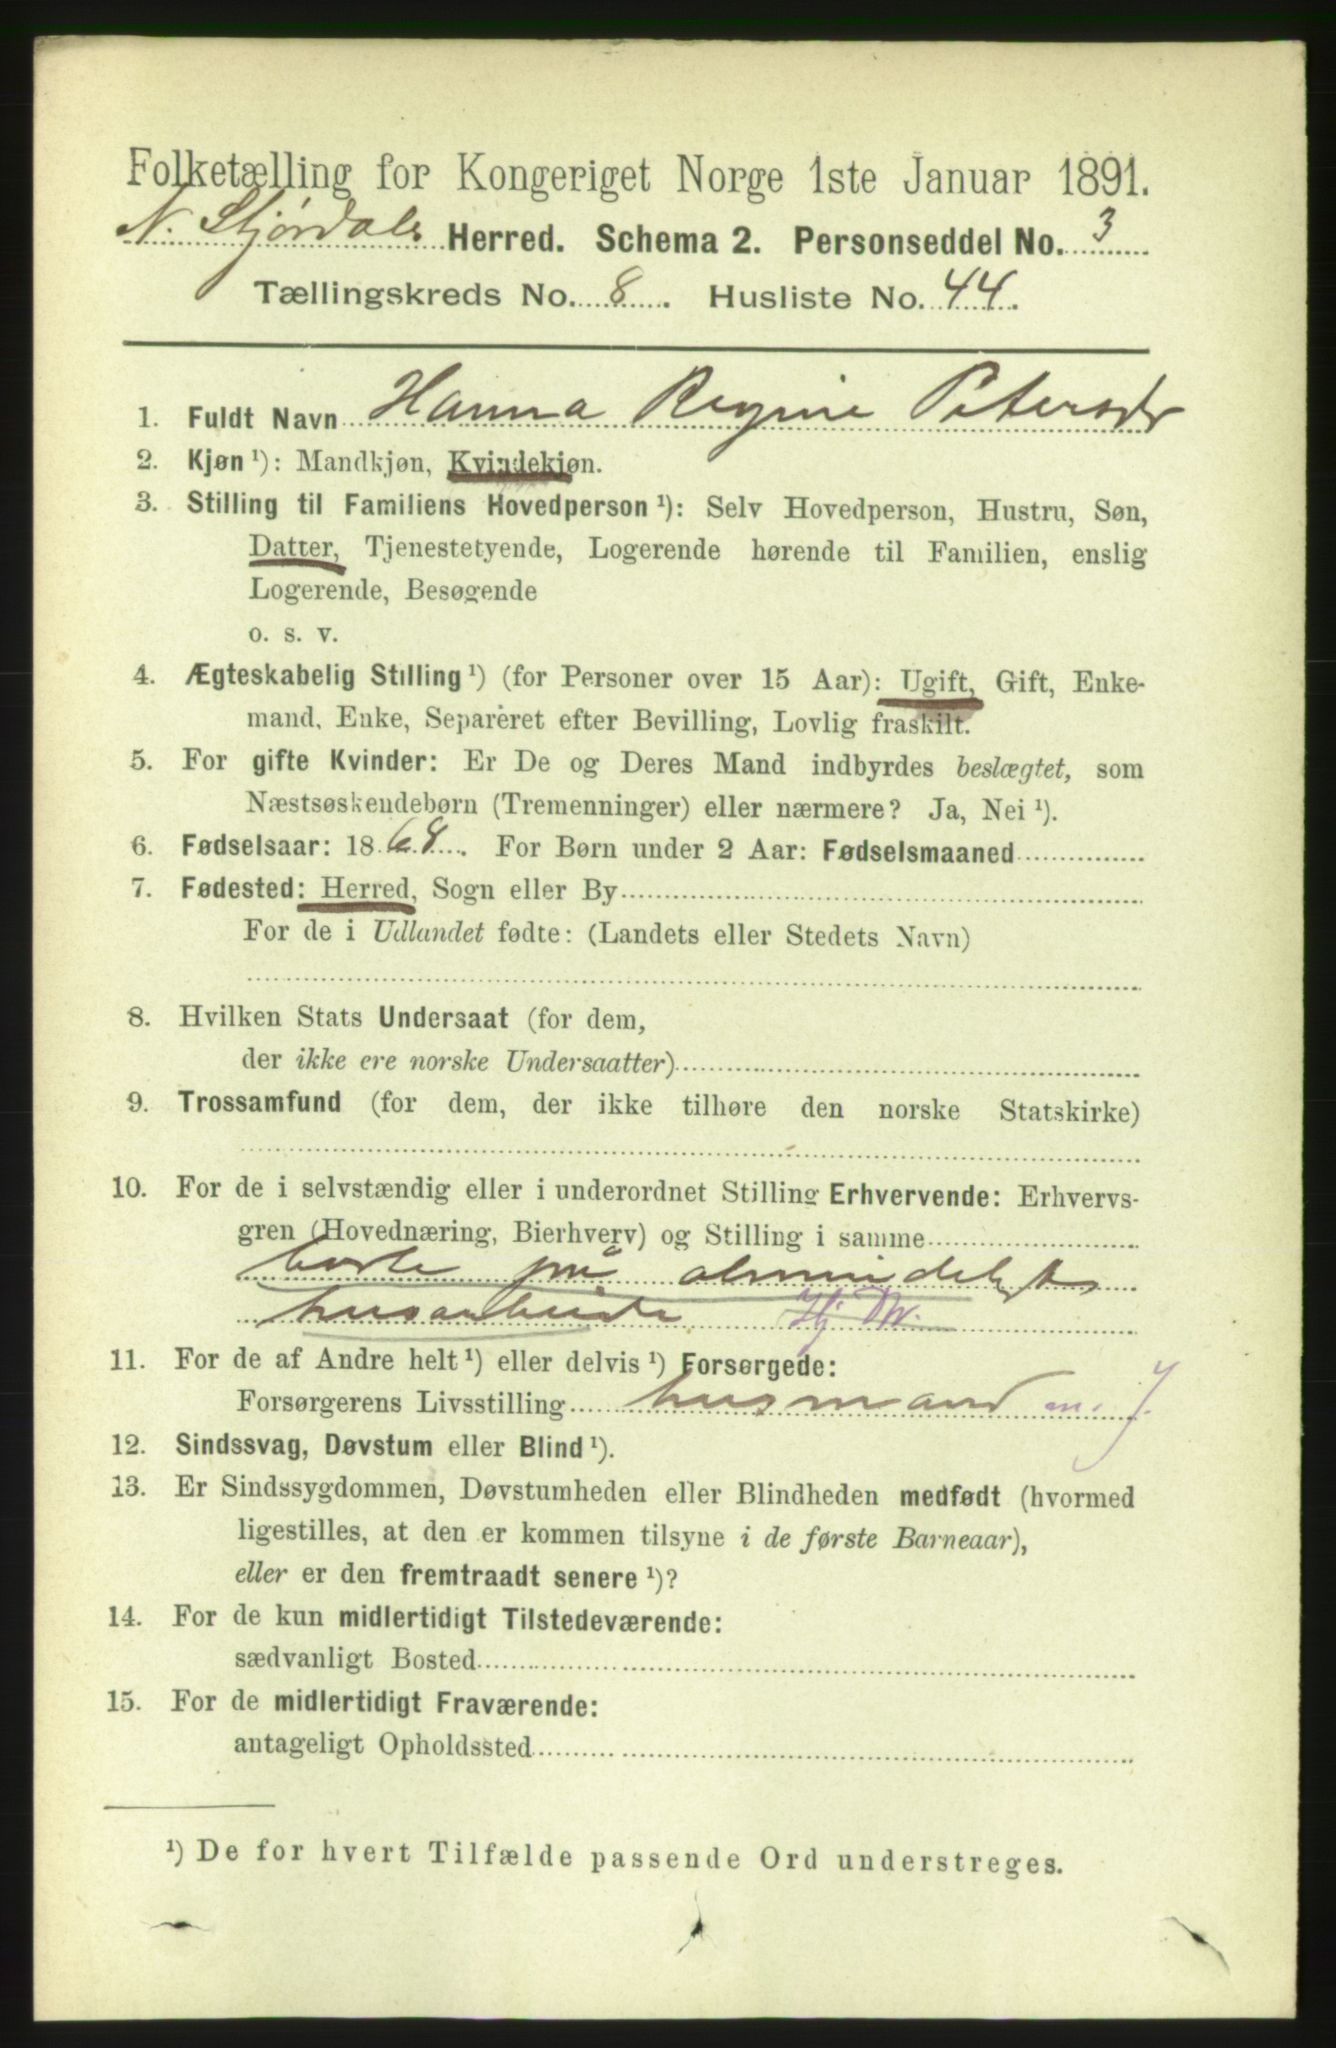 Folketælling for Kongeriget Norge 1ste Januar 1891.
N. Stjørdals Herred. Schema 2. Personseddel No. 3
Tællingskreds No. 8. Husliste No. 44.
1. Fuldt Navn Hanna Regine Petersdr
2. Kjøn ¹): Mandkjøn, Kvindekjøn.
3. Stilling til Familiens Hovedperson ¹): Selv Hovedperson, Hustru, Søn,
Datter, Tjenestetyende, Logerende hørende til Familien, enslig
Logerende, Besøgende
o. s. v.
4. Ægteskabelig Stilling ¹) (for Personer over 15 Aar): Ugift, Gift, Enke-
mand, Enke, Separeret efter Bevilling, Lovlig fraskilt.
5. For gifte Kvinder: Er De og Deres Mand indbyrdes beslægtet, som
Næstsøskendebørn (Tremenninger) eller nærmere? Ja, Nei ¹).
6. Fødselsaar: 1868. For Børn under 2 Aar: Fødselsmaaned
7. Fødested: Herred, Sogn eller By
For de i Udlandet fødte: (Landets eller Stedets Navn)
8. Hvilken Stats Undersaat (for dem,
der ikke ere norske Undersaatter)
9. Trossamfund (for dem, der ikke tilhøre den norske Statskirke)
10. For de i selvstændig eller i underordnet Stilling Erhvervende: Erhvervs-
gren (Hovednæring, Bierhverv) og Stilling i samme
borte på almindeligt
husarbeide
11. For de af Andre helt ¹) eller delvis ¹) Forsørgede:
Forsørgerens Livsstilling husmand m. J.
12. Sindssvag, Døvstum eller Blind ¹).
13. Er Sindssygdommen, Døvstumheden eller Blindheden medfødt (hvormed
ligestilles, at den er kommen tilsyne i de første Barneaar),
eller er den fremtraadt senere ¹)?
14. For de kun midlertidigt Tilstedeværende:
sædvanligt Bosted
15. For de midlertidigt Fraværende:
antageligt Opholdssted
¹) De for hvert Tilfælde passende Ord understreges.